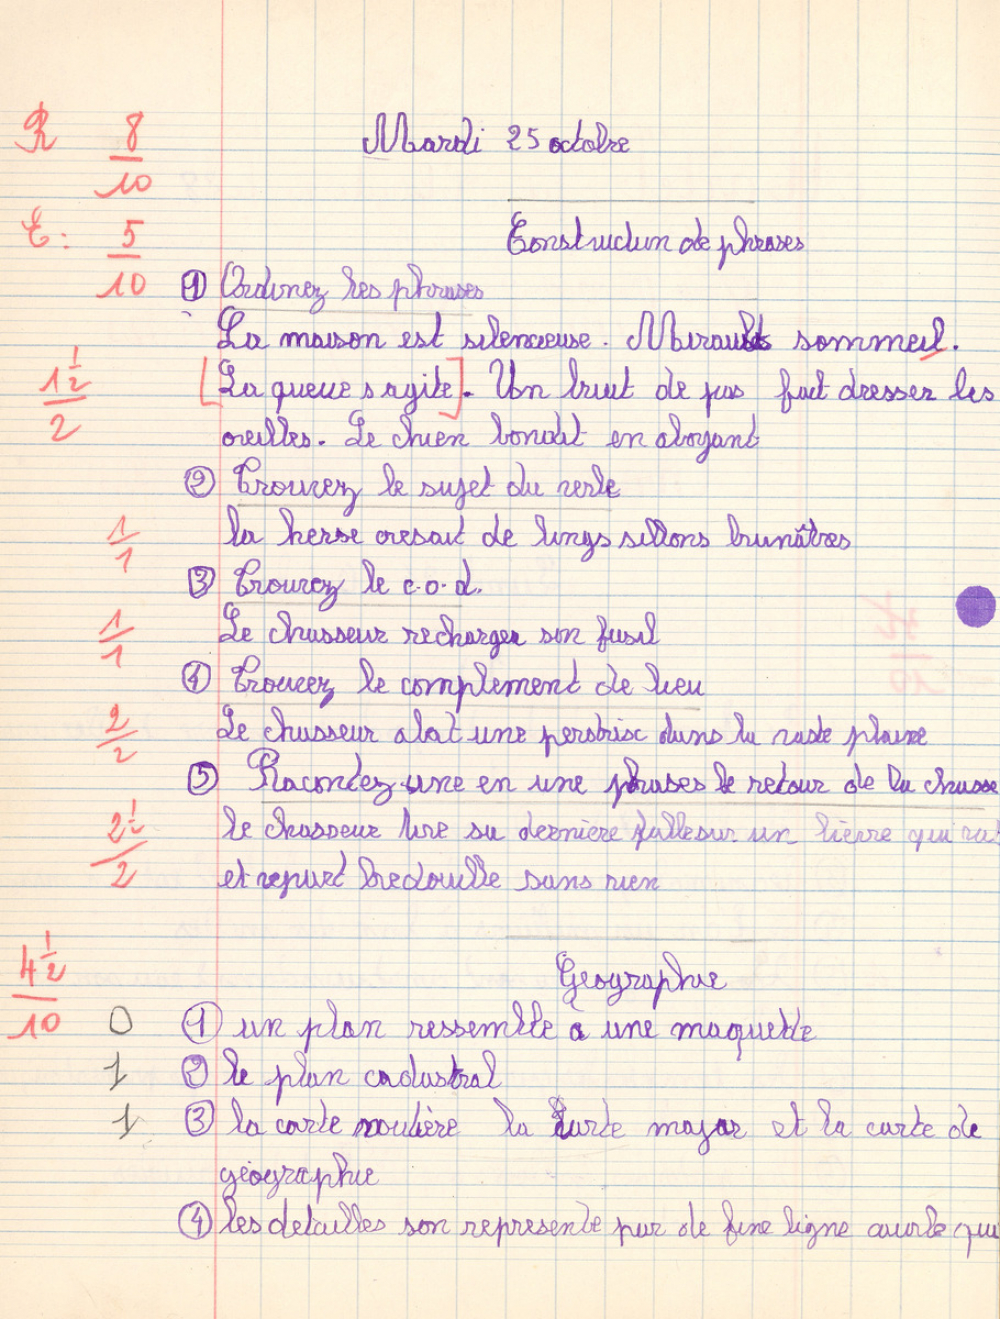 R 8/10 Mardi 25 octobre
E: 5/10 Construction de phrases
① Ordonez les phrases
La maison est silencieuse. Miraut someil.
1 1/2 / 2 [La queue s agite]. Un bruit de pas fait dresser les
oreilles. Le chien bondit en aboyant
② Trouvez le sujet du verbe
1/1 la herse cresait de longs sillons brunâtres
③ Trouvez le c.o.d.
1/1 Le chasseur recharger son fusil
④ Trouvez le complement de lieu
2/2 Le chasseur abat une perdrix dans la vaste plaine
⑤ Racontez une en une phrases le retour de la chasse
2 1/2 / 2 le chasseur tire sa dernière balle sur un lièvre qui
et repard bredouille sans rien
4 1/2 / 10 Géographie
0 ① un plan ressemble à une maquette
1 ② le plan cadastral
1 ③ la carte routière la carte major et la carte de
géographie
④ les detailles son represente par de fine ligne